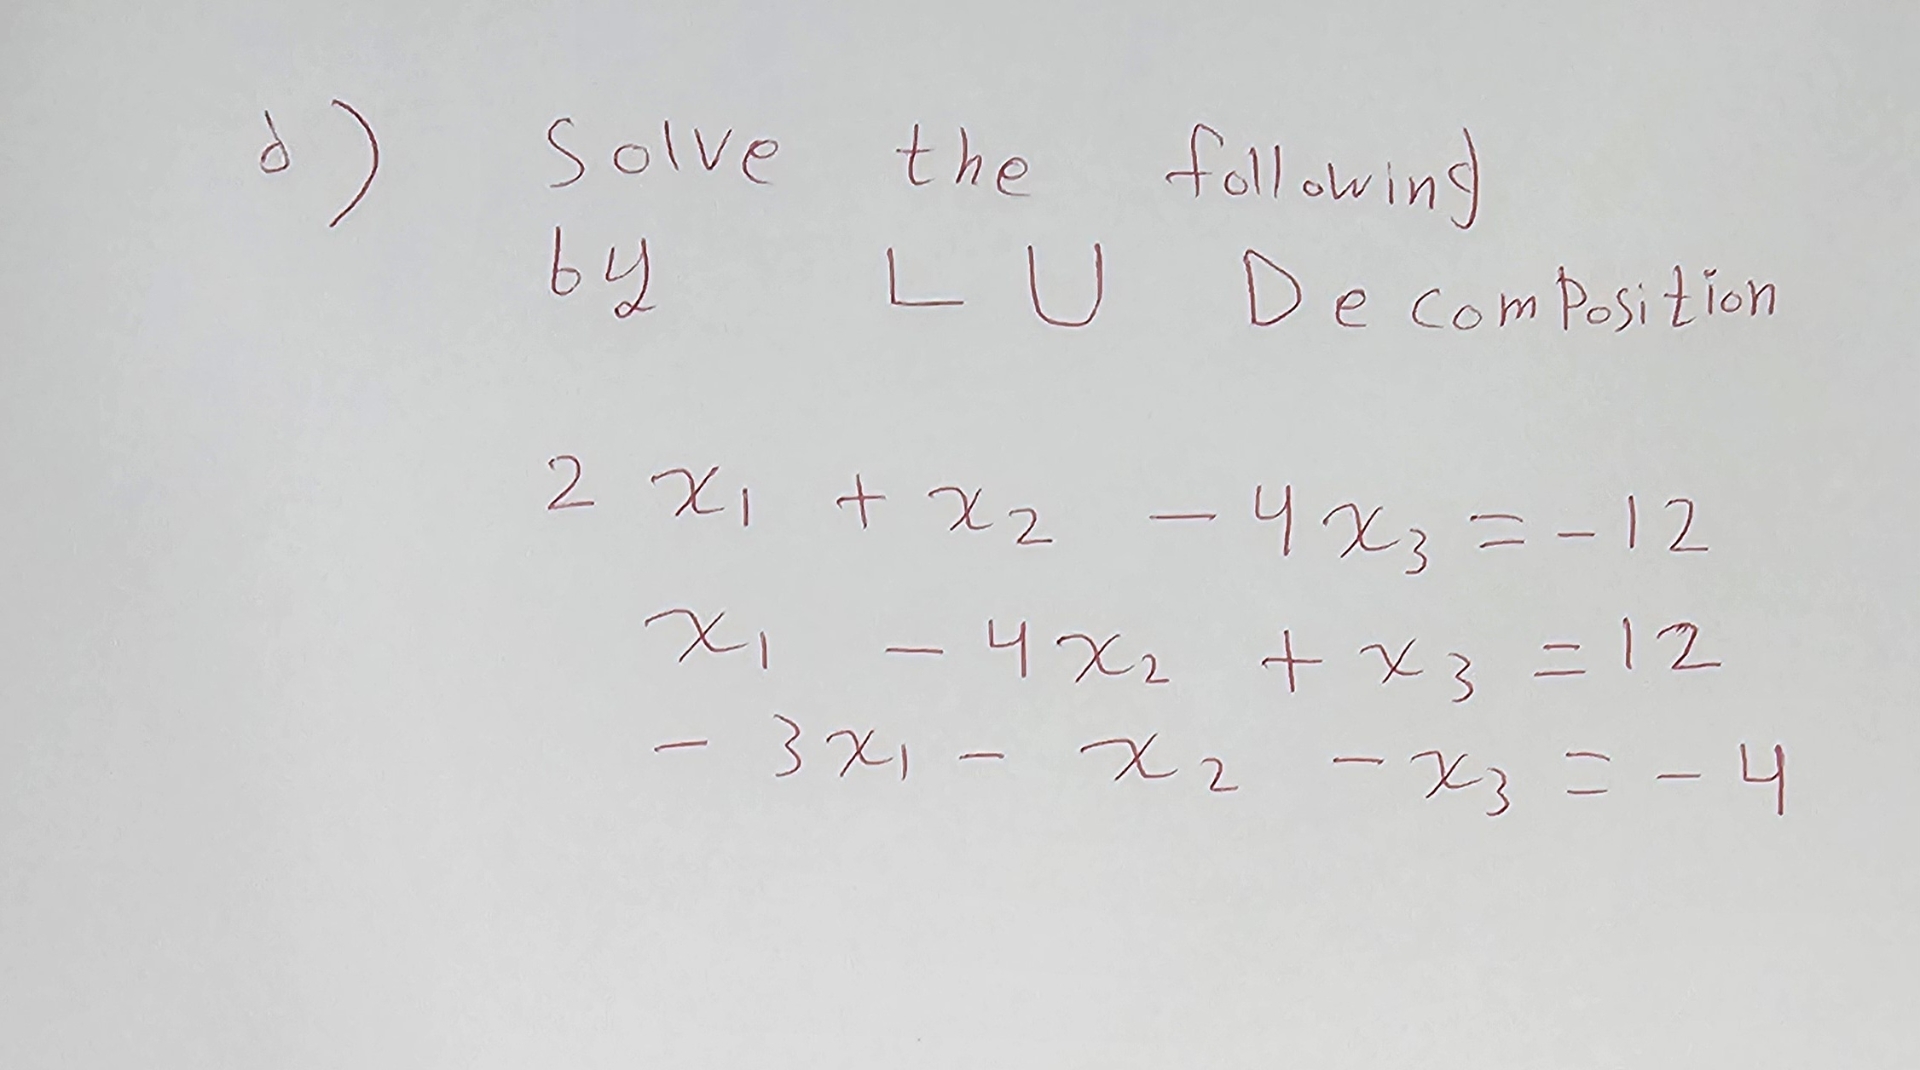 d) Solve the following
by LU Decomposition
2x₁ + x₂ - 4x₃ = -12
x₁ - 4x₂ + x₃ = 12
- 3x₁ - x₂ - x₃ = - 4